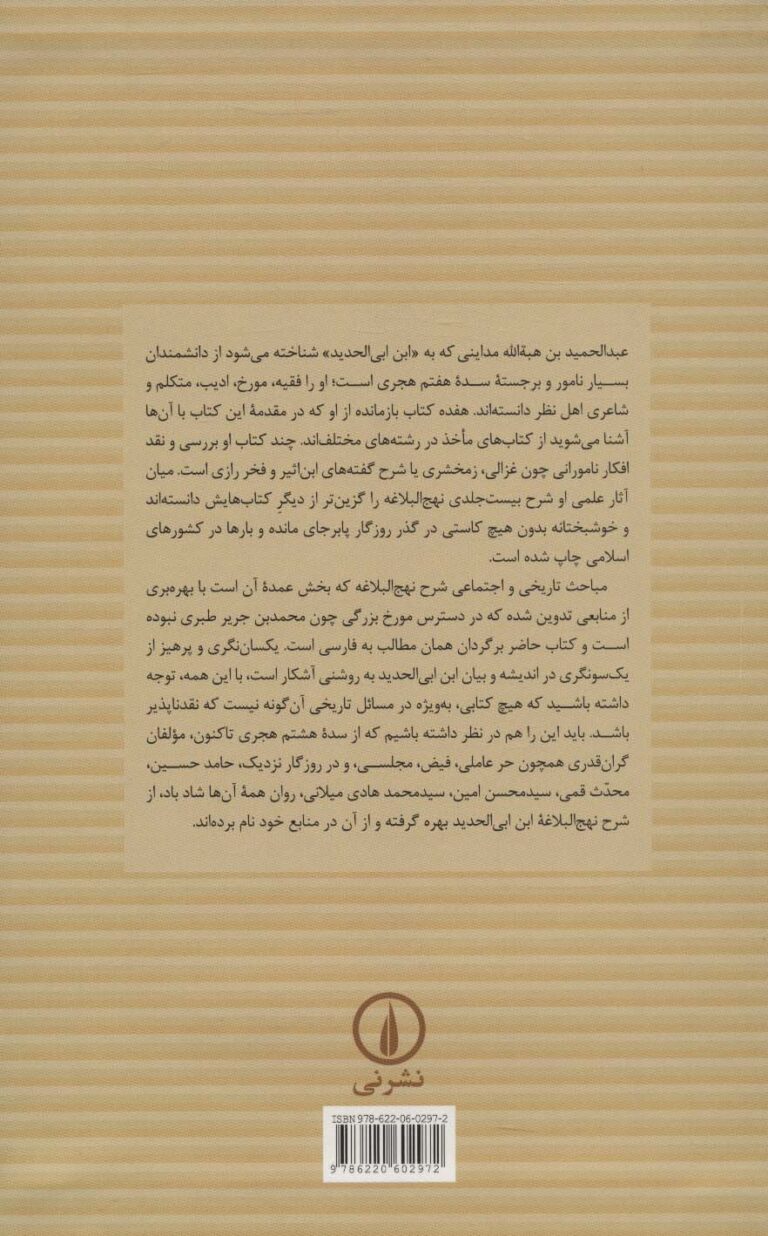 عبدالحمید بن هبةالله مداینی که به «ابن ابی‌الحدید» شناخته می‌شود از دانشمندان
بسیار نامور و برجستهٔ سدهٔ هفتم هجری است؛ او را فقیه، مورخ، ادیب، متکلم و
شاعری اهل نظر دانسته‌اند. هفده کتاب بازمانده از او که در مقدمهٔ این کتاب با آن‌ها
آشنا می‌شوید از کتاب‌های مأخذ در رشته‌های مختلف‌اند. چند کتاب او بررسی و نقد
افکار نامورانی چون غزالی، زمخشری یا شرح گفته‌های ابن‌اثیر و فخر رازی است. میان
آثار علمی او شرح بیست‌جلدی نهج‌البلاغه را گزین‌تر از دیگرِ کتاب‌هایش دانسته‌اند
و خوشبختانه بدون هیچ کاستی در گذر روزگار پابرجای مانده و بارها در کشورهای
اسلامی چاپ شده است.
مباحث تاریخی و اجتماعی شرح نهج‌البلاغه که بخش عمدهٔ آن است با بهره‌بری
از منابعی تدوین شده که در دسترس مورخ بزرگی چون محمدبن جریر طبری نبوده
است و کتاب حاضر برگردان همان مطالب به فارسی است. یکسان‌نگری و پرهیز از
یک‌سونگری در اندیشه و بیان ابن ابی‌الحدید به روشنی آشکار است، با این همه، توجه
داشته باشید که هیچ کتابی، به‌ویژه در مسائل تاریخی آن‌گونه نیست که نقدناپذیر
باشد. باید این را هم در نظر داشته باشیم که از سدهٔ هشتم هجری تاکنون، مؤلفان
گران‌قدری همچون حر عاملی، فیض، مجلسی، و در روزگار نزدیک، حامد حسین،
محدّث قمی، سیدمحسن امین، سیدمحمد هادی میلانی، روان همهٔ آن‌ها شاد باد، از
شرح نهج‌البلاغهٔ ابن ابی‌الحدید بهره گرفته و از آن در منابع خود نام برده‌اند.
نشرنی
ISBN 978-622-06-0297-2
9 786220 602972